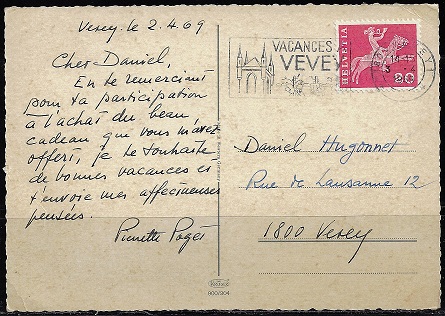 Vevey. le 2.4.69
Cher Daniel,
En te remerciant
pour ta participation
à l'achat du beau
cadeau que vous m'avez
offert, je te souhaite
de bonnes vacances et
t'envoie mes affectueuses
pensées.
Pierrette Paget
VACANCES
VEVEY
HELVETIA
20
Daniel Hugonnet
Rue de Lausanne 12
1800 Vevey
900/304